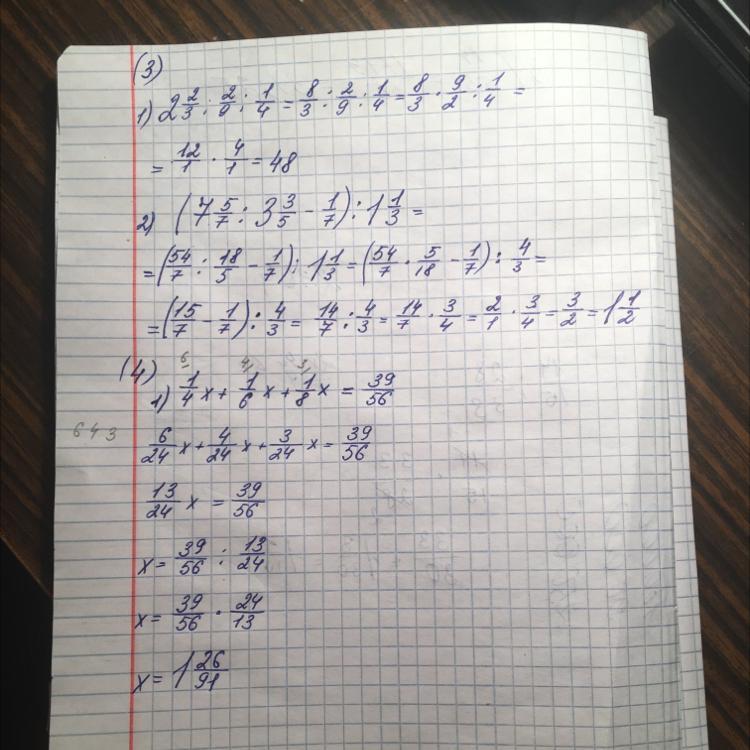 (3)
1) 2 2/3 : 2/9 : 1/4 = 8/3 : 2/9 : 1/4 = 8/3 · 9/2 : 1/4 =
= 12/1 · 4/1 = 48
2) (7 5/7 : 3 3/5 - 1/7) : 1 1/3 =
= (54/7 : 18/5 - 1/7) : 1 1/3 = (54/7 · 5/18 - 1/7) : 4/3 =
= (15/7 - 1/7) : 4/3 = 14/7 : 4/3 = 14/7 · 3/4 = 2/1 · 3/4 = 3/2 = 1 1/2
(4)
6) 4) 3)
1) 1/4 x + 1/6 x + 1/8 x = 39/56
6 4 3
6/24 x + 4/24 x + 3/24 x = 39/56
13/24 x = 39/56
x = 39/56 : 13/24
x = 39/56 · 24/13
x = 1 26/91